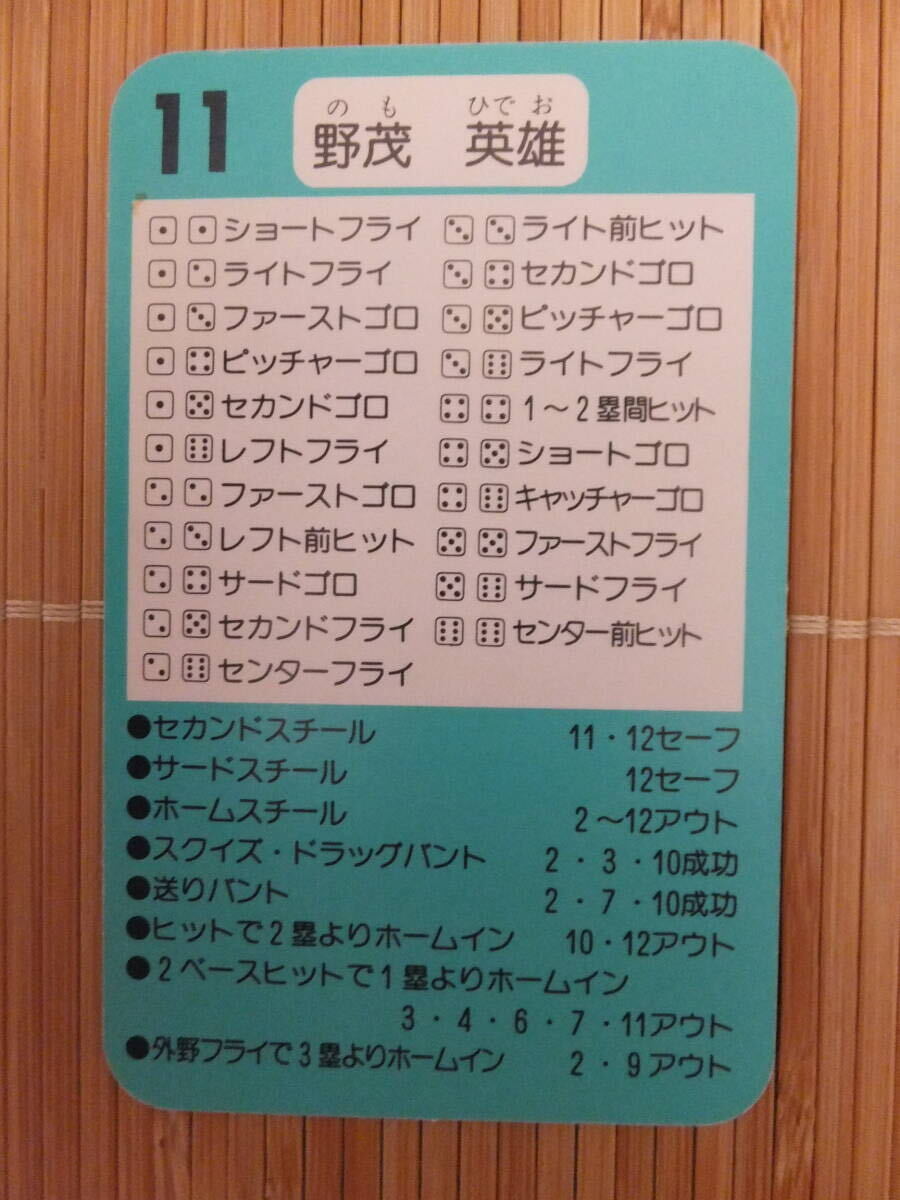 11
のも ひでお
野茂 英雄
⚀⚀ショートフライ
⚀⚁ライトフライ
⚀⚂ファーストゴロ
⚀⚃ピッチャーゴロ
⚀⚄セカンドゴロ
⚀⚅レフトフライ
⚁⚁ファーストゴロ
⚁⚂レフト前ヒット
⚁⚃サードゴロ
⚁⚄セカンドフライ
⚁⚅センターフライ
⚂⚂ライト前ヒット
⚂⚃セカンドゴロ
⚂⚄ピッチャーゴロ
⚂⚅ライトフライ
⚃⚃1～2塁間ヒット
⚃⚄ショートゴロ
⚃⚅キャッチャーゴロ
⚄⚄ファーストフライ
⚄⚅サードフライ
⚅⚅センター前ヒット
●セカンドスチール 11・12セーフ
●サードスチール 12セーフ
●ホームスチール 2～12アウト
●スクイズ・ドラッグバント 2・3・10成功
●送りバント 2・7・10成功
●ヒットで2塁よりホームイン 10・12アウト
●2ベースヒットで1塁よりホームイン
3・4・6・7・11アウト
●外野フライで3塁よりホームイン 2・9アウト